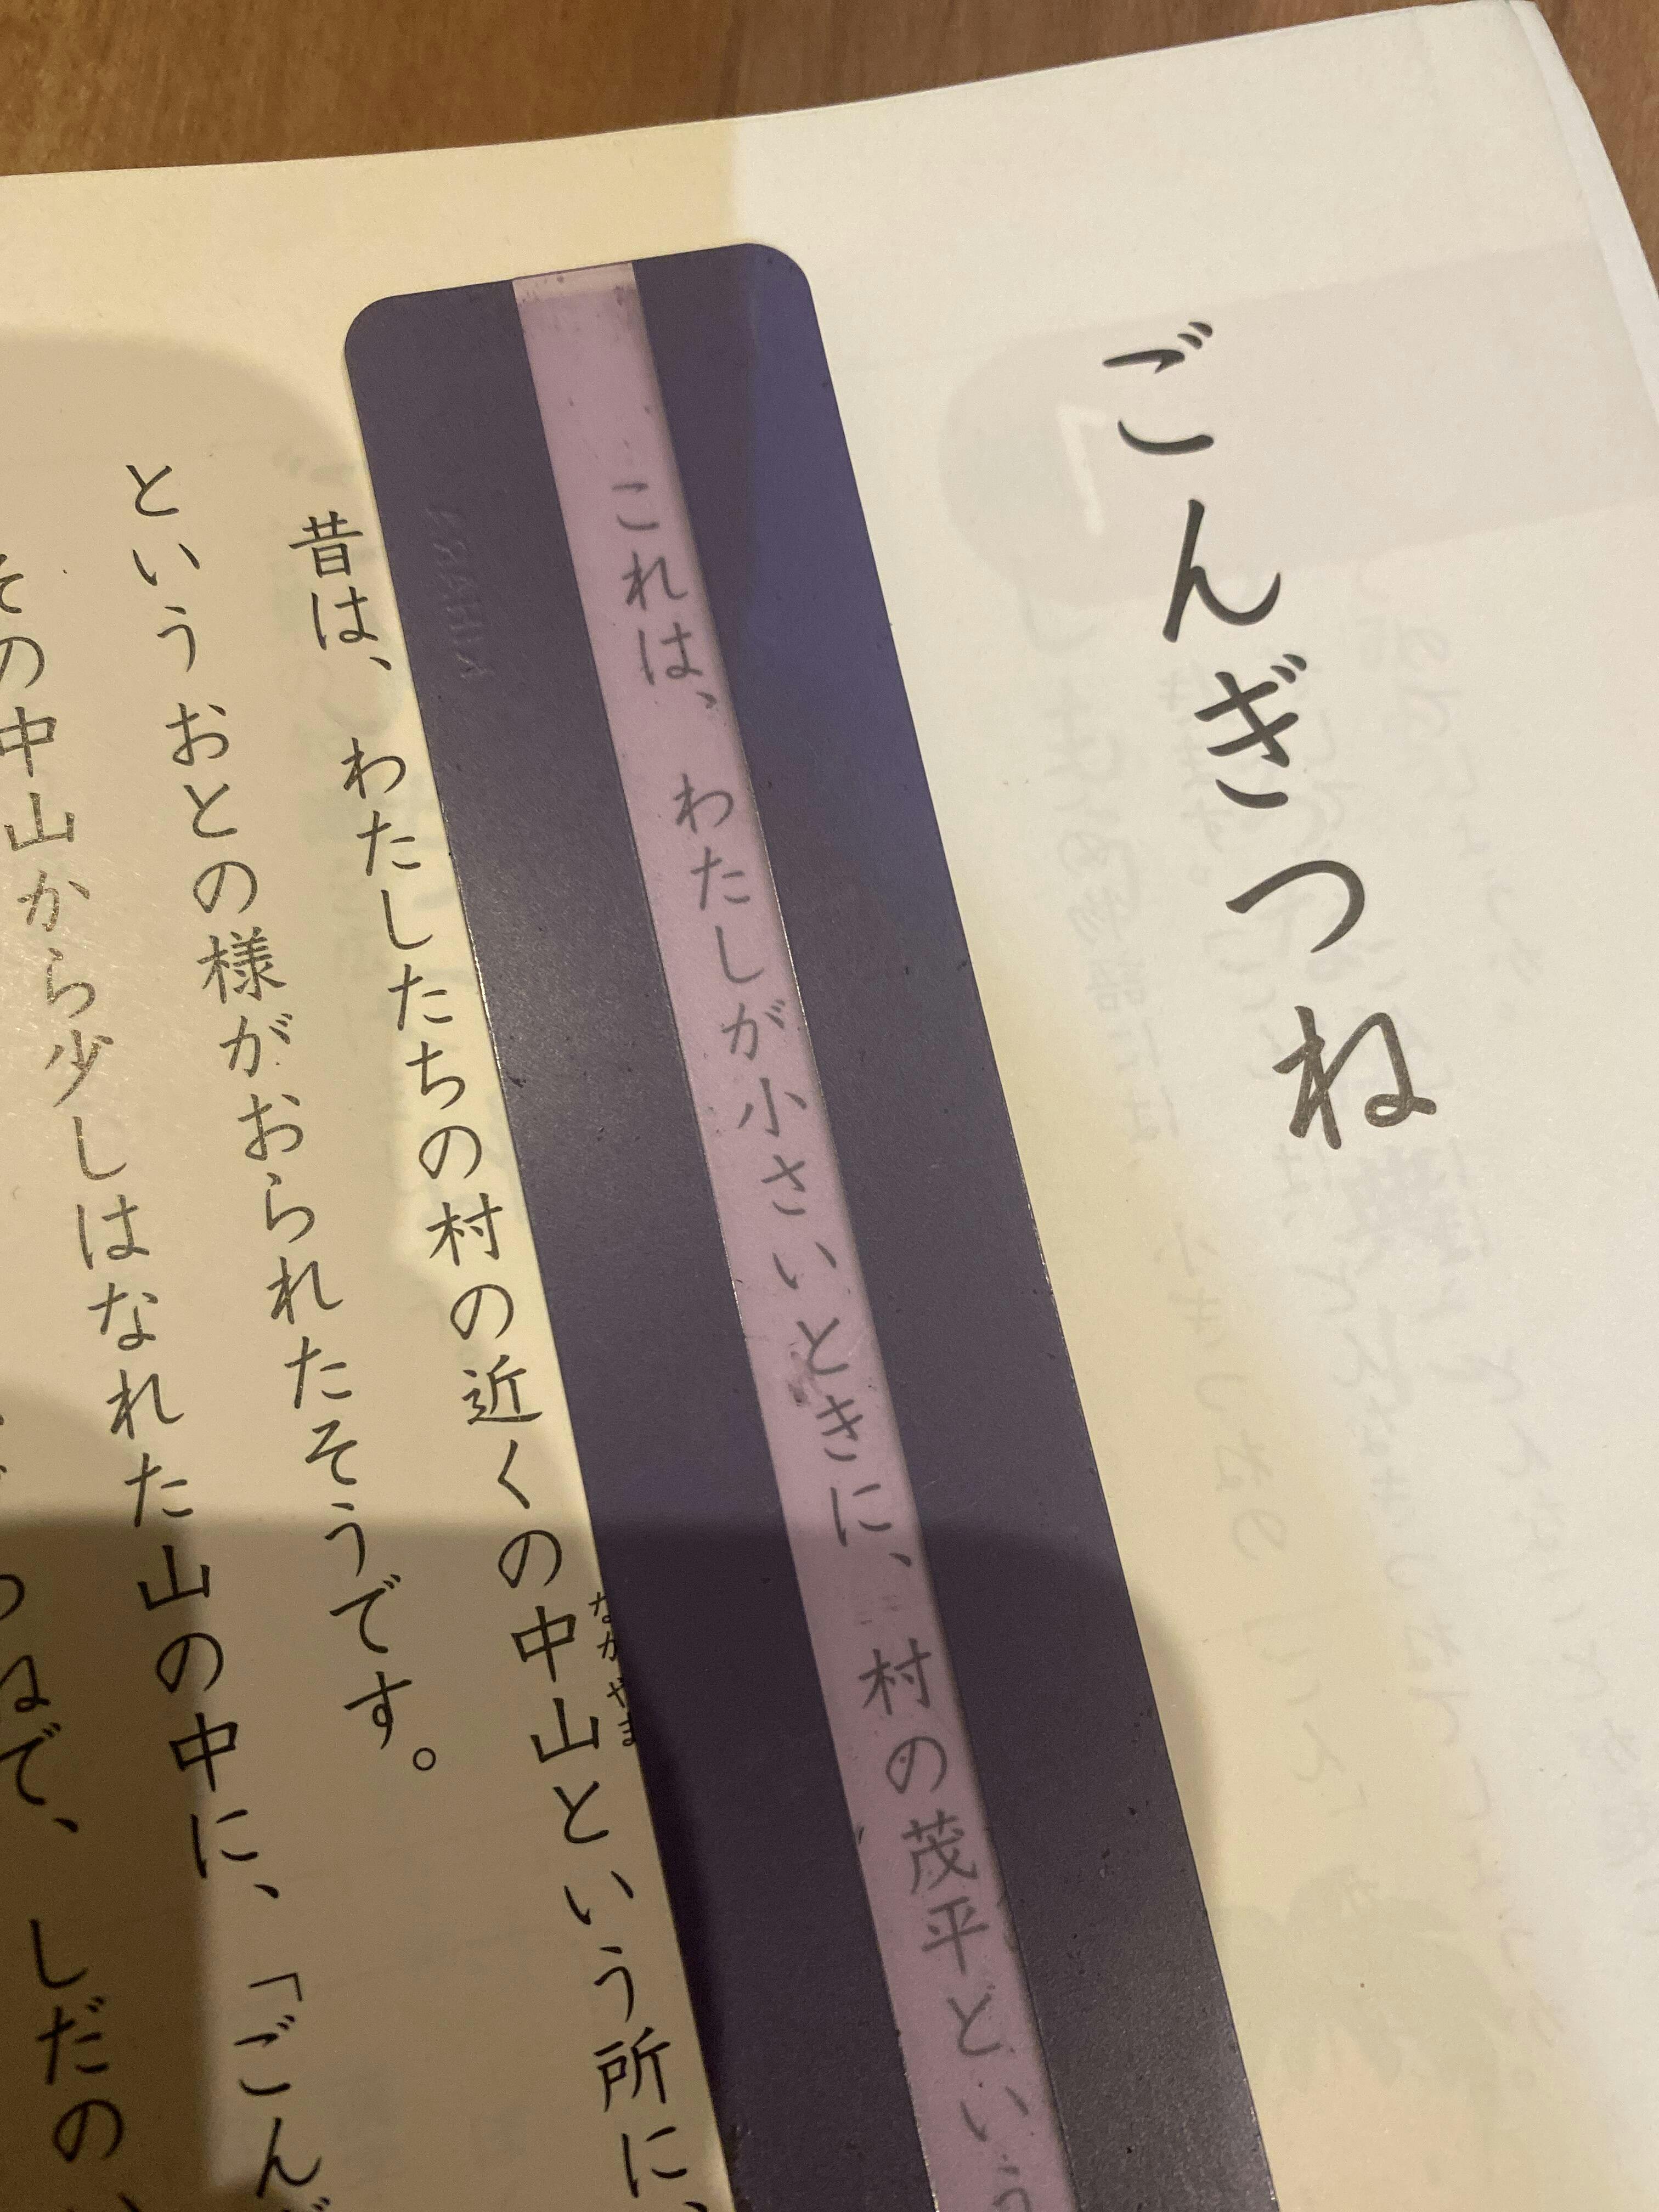 ごんぎつね
これは、わたしが小さいときに、村の茂平という
昔は、わたしたちの村の近くの中山という所に、
なかやま
というおとの様がおられたそうです。
その中山から少しはなれた山の中に、「ごん
ねで、しだの